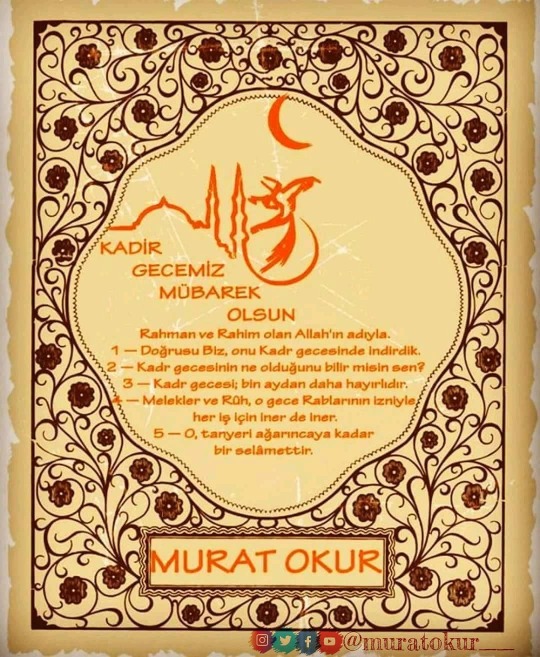 KADİR
GECEMİZ
MÜBAREK
OLSUN
Rahman ve Rahim olan Allah'ın adıyla.
1 — Doğrusu Biz, onu Kadr gecesinde indirdik.
2 — Kadr gecesinin ne olduğunu bilir misin sen?
3 — Kadr gecesi; bin aydan daha hayırlıdır.
4 — Melekler ve Rûh, o gece Rablarının izniyle,
her iş için iner de iner.
5 — O, tanyeri ağarıncaya kadar
bir selâmettir.
MURAT OKUR
@muratokur___